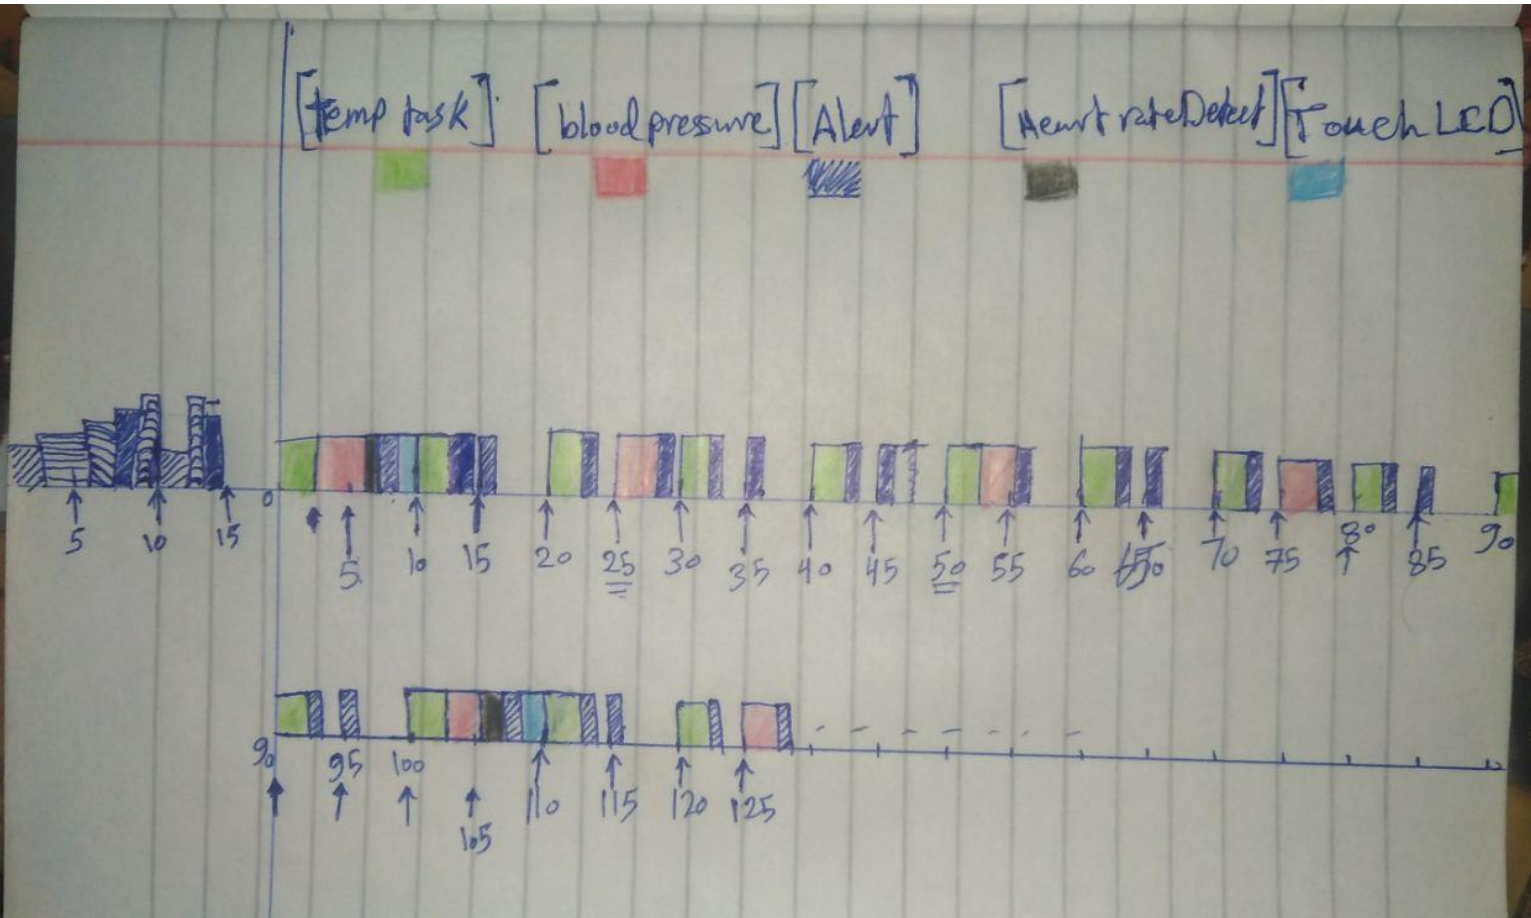 [temp task] [blood pressure] [Alert] [Heart rateDetect] [Touch LCD]
5 10 15 0 5 10 15 20 25 30 35 40 45 50 55 60 70 75 80 85 90
90 95 100 105 110 115 120 125